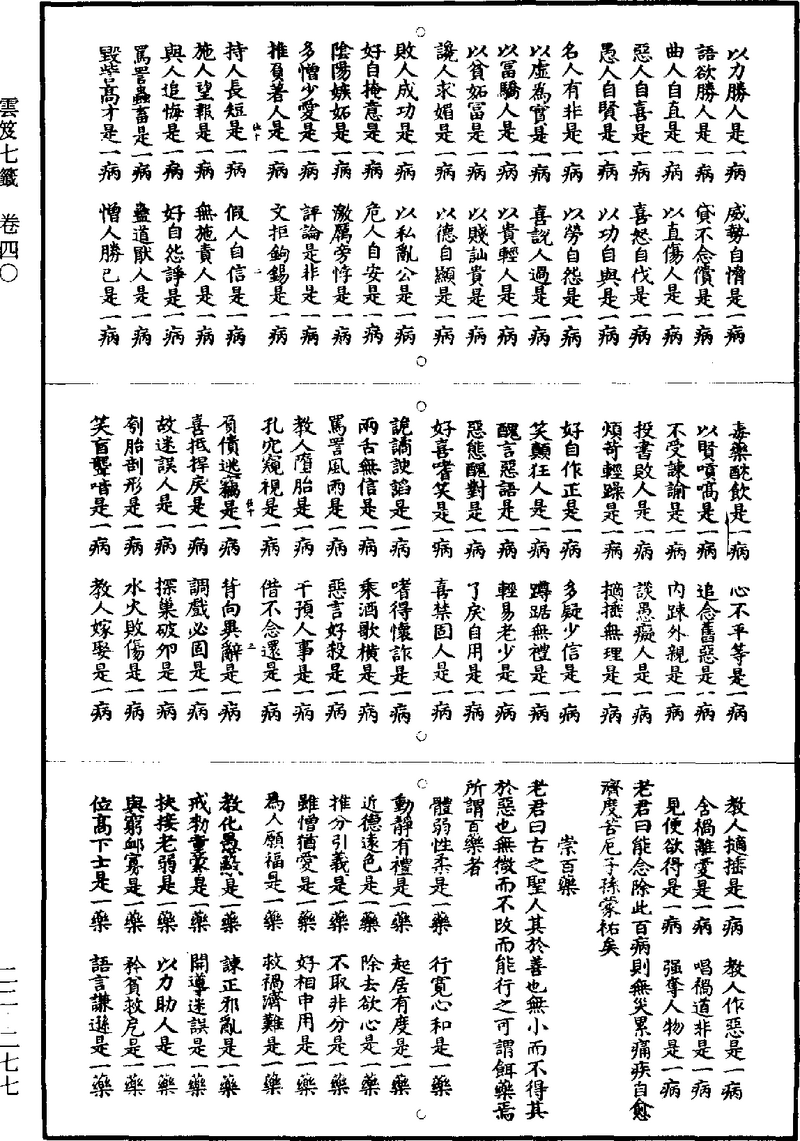 雲笈七籤　卷四〇
二二‧二七七
以力勝人是一病　威勢自憎是一病
語欲勝人是一病　貸不念償是一病
曲人自直是一病　以直傷人是一病
惡人自喜是一病　喜怒自伐是一病
愚人自賢是一病　以功自與是一病
名人有非是一病　以勞自怨是一病
以虛為實是一病　喜說人過是一病
以冨驕人是一病　以貴輕人是一病
以貧妬冨是一病　以賤訕貴是一病
讒人求媚是一病　以德自顯是一病
敗人成功是一病　以私亂公是一病
好自掩意是一病　危人自安是一病
陰陽嫉妬是一病　激厲旁悖是一病
多憎少愛是一病　評論是非是一病
推負著人是一病　文拒鉤錫是一病
持人長短是一病　假人自信是一病
施人望報是一病　無施責人是一病
與人追悔是一病　好自怨諍是一病
罵詈蟲畜是一病　蠱道猒人是一病
毀訾高才是一病　憎人勝己是一病
毒藥酖飲是一病　心不平等是一病
以賢嗊嗃是一病　追念舊惡是一病
不受諫諭是一病　內踈外親是一病
投書敗人是一病　談愚癡人是一病
煩苛輕躁是一病　擿揺無理是一病
好自作正是一病　多疑少信是一病
笑顛狂人是一病　蹲踞無禮是一病
醜言惡語是一病　輕易老少是一病
惡態醜對是一病　了戾自用是一病
好喜嗜笑是一病　喜禁固人是一病
詭譎諛諂是一病　嗜得懷詐是一病
兩舌無信是一病　乘酒歌橫是一病
罵詈風雨是一病　惡言好殺是一病
教人墮胎是一病　干預人事是一病
孔穴窺視是一病　借不念還是一病
負債逃竊是一病　背向異辭是一病
喜抵捍戾是一病　調戲必固是一病
故迷誤人是一病　探巢破卵是一病
刳胎剖形是一病　水火敗傷是一病
笑盲聾喑是一病　教人嫁娶是一病
教人擿揺是一病　教人作惡是一病
含禍離愛是一病　唱禍道非是一病
見便欲得是一病　强奪人物是一病
老君曰能念除此百病則無災累痛疾自愈
濟度苦厄子孫蒙祐矣
崇百藥
老君曰古之聖人其於善也無小而不得其
於惡也無微而不改而能行之可謂餌藥焉
所謂百藥者
體弱性柔是一藥　行寬心和是一藥
動靜有禮是一藥　起居有度是一藥
近德遠色是一藥　除去欲心是一藥
推分引義是一藥　不取非分是一藥
雖憎猶愛是一藥　好相申用是一藥
為人願福是一藥　救禍濟難是一藥
教化愚蔽是一藥　諫正邪亂是一藥
戒勑童蒙是一藥　開導迷誤是一藥
扶接老弱是一藥　以力助人是一藥
與窮卹寡是一藥　矜貧救厄是一藥
位高下士是一藥　語言謙遜是一藥